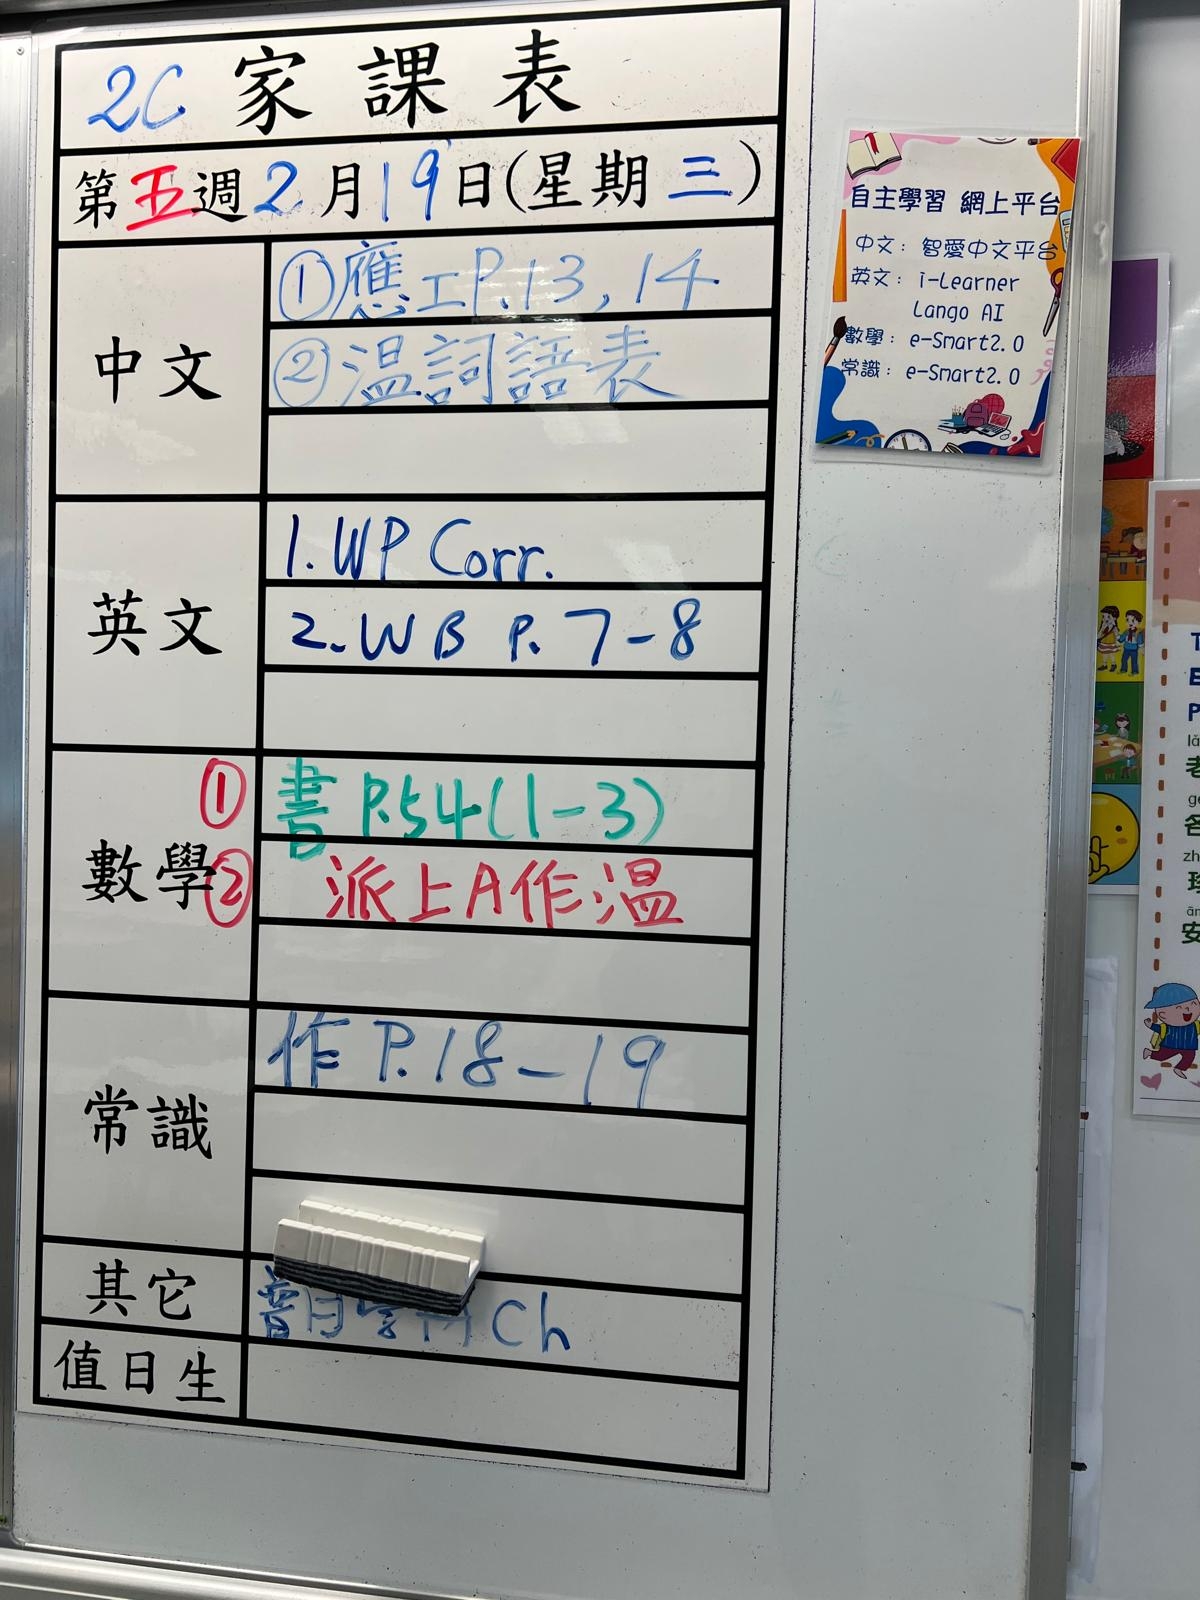 2C 家課表
第五週2月19日(星期三)
中文
①應工P.13, 14
②温詞語表
英文
1. WP Corr.
2. WB P. 7-8
數學
① 書 P.54(1-3)
② 派上A作温
常識
作 P.18-19
其它
Ch
值日生
自主學習 網上平台
中文：智愛中文平台
英文：i-Learner
Lango AI
數學：e-Smart2.0
常識：e-Smart2.0